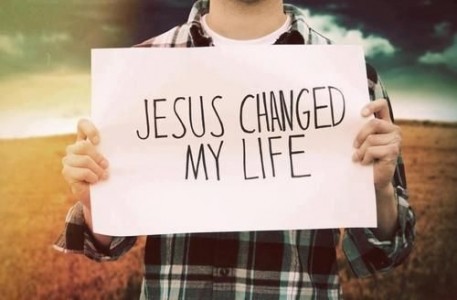 JESUS CHANGED
MY LIFE